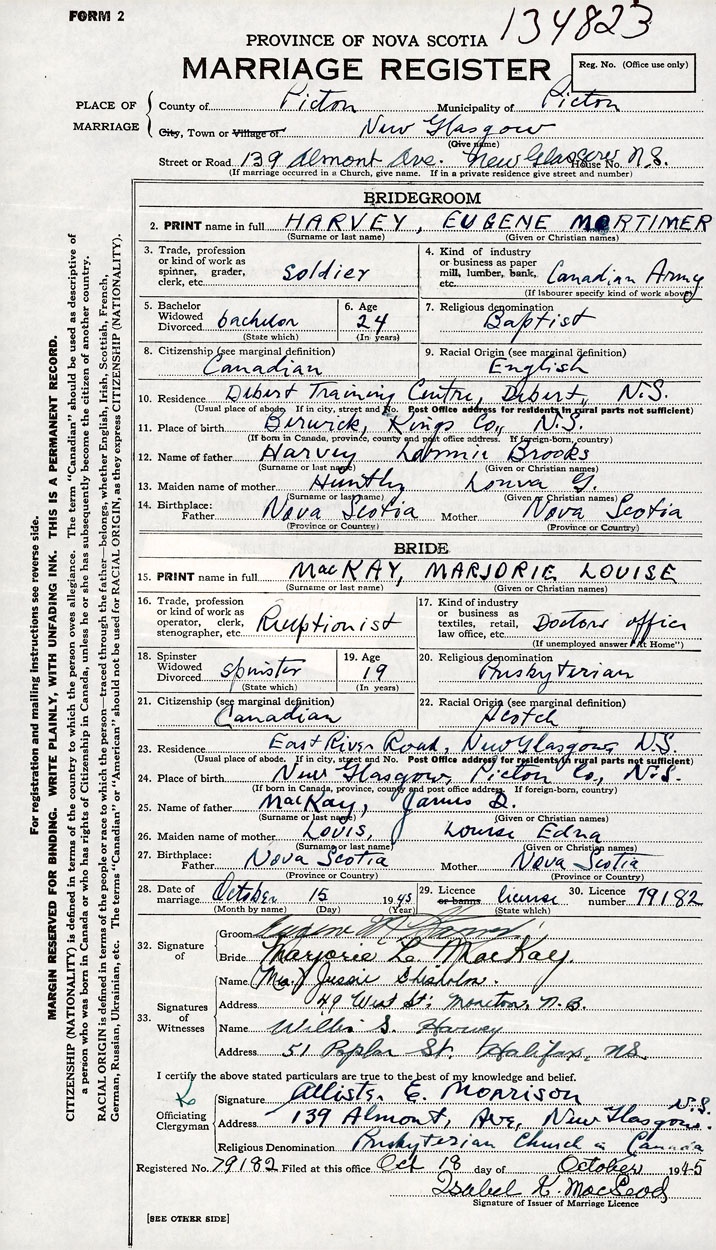 FORM 2
134823
PROVINCE OF NOVA SCOTIA
MARRIAGE REGISTER
Reg. No. (Office use only)
PLACE OF MARRIAGE
County of Pictou Municipality of Pictou
City, Town or Village of New Glasgow
(Give name)
Street or Road 139 Almont Ave. New Glasgow House No. N.S.
(If marriage occurred in a Church, give name. If in a private residence give street and number)
BRIDEGROOM
2. PRINT name in full HARVEY, EUGENE MORTIMER
(Surname or last name) (Given or Christian names)
3. Trade, profession or kind of work as spinner, grader, clerk, etc. soldier
4. Kind of industry or business as paper mill, lumber, bank, etc. Canadian Army
(If labourer specify kind of work above)
5. Bachelor Widowed Divorced bachelor
(State which)
6. Age 24
(In years)
7. Religious denomination Baptist
8. Citizenship (see marginal definition) Canadian
9. Racial Origin (see marginal definition) English
10. Residence Debert Training Centre, Debert, N.S.
(Usual place of abode. If in city, street and No. Post Office address for residents in rural parts not sufficient)
11. Place of birth Berwick, Kings Co., N.S.
(If born in Canada, province, county and post office address. If foreign-born, country)
12. Name of father Harvey Brooks
(Surname or last name) (Given or Christian names)
13. Maiden name of mother Huntly G.
(Surname or last name) (Given or Christian names)
14. Birthplace: Father Nova Scotia Mother Nova Scotia
(Province or Country) (Province or Country)
BRIDE
15. PRINT name in full MacKAY, MARJORIE LOUISE
(Surname or last name) (Given or Christian names)
16. Trade, profession or kind of work as operator, clerk, stenographer, etc. Receptionist
17. Kind of industry or business as textiles, retail, law office, etc. Doctors office
(If unemployed answer "At Home")
18. Spinster Widowed Divorced spinster
(State which)
19. Age 19
(In years)
20. Religious denomination Presbyterian
21. Citizenship (see marginal definition) Canadian
22. Racial Origin (see marginal definition) Scotch
23. Residence East River Road, New Glasgow, N.S.
(Usual place of abode. If in city, street and No. Post Office address for residents in rural parts not sufficient)
24. Place of birth New Glasgow, Pictou Co., N.S.
(If born in Canada, province, county and post office address. If foreign-born, country)
25. Name of father MacKay, James D.
(Surname or last name) (Given or Christian names)
26. Maiden name of mother Lovis, Louise Edna
(Surname or last name) (Given or Christian names)
27. Birthplace: Father Nova Scotia Mother Nova Scotia
(Province or Country) (Province or Country)
28. Date of marriage October 15 1945
(Month by name) (Day) (Year)
29. Licence or banns license
(State which)
30. Licence number 79182
32. Signature of
Groom Eugene M. Harvey
Bride Marjorie L. MacKay
33. Signatures of Witnesses
Name Jessie Chisholm.
Address 49 West St., Moncton, N.B.
Name Willis S. Harvey
Address 51 Poplar St. Halifax, N.S.
I certify the above stated particulars are true to the best of my knowledge and belief.
Officiating Clergyman
Signature Allister E. Morrison
Address 139 Almont, Ave, New Glasgow. N.S.
Religious Denomination Presbyterian Church in Canada
Registered No. 79182 Filed at this office Oct 18 day of October 1945
Isabel K. MacLeod
Signature of Issuer of Marriage Licence
[SEE OTHER SIDE]
For registration and mailing instructions see reverse side.
MARGIN RESERVED FOR BINDING. WRITE PLAINLY, WITH UNFADING INK. THIS IS A PERMANENT RECORD.
CITIZENSHIP (NATIONALITY) is defined in terms of the country to which the person owes allegiance. The term "Canadian" should be used as descriptive of
a person who was born in Canada or who has rights of Citizenship in Canada, unless he or she has subsequently become the citizen of another country.
RACIAL ORIGIN is defined in terms of the people or race to which the person—traced through the father—belongs, whether English, Irish, Scottish, French,
German, Russian, Ukrainian, etc. The terms "Canadian" or "American" should not be used for RACIAL ORIGIN, as they express CITIZENSHIP (NATIONALITY).